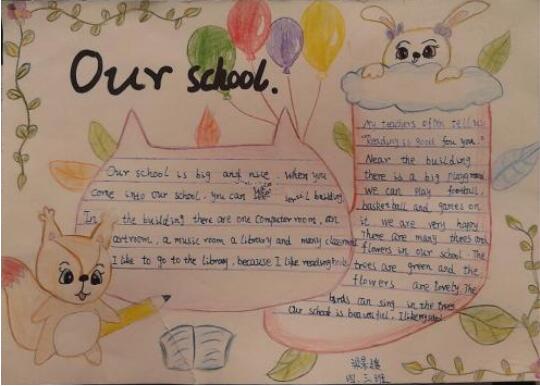 Our school.
Our school is big and nice. When you
come into our school, you can see building
In the building there are one computer room, an
artroom, a music room a library and many classroom
I like to go to the library, because I like reading books
My teachers often tell us
"Reading is good for you."
Near the building
there is a big playground
we can play football,
basketball and games on
it we are very happy
There are many trees and
flowers in our school. The
trees are green and the
flowers are lovely. The
birds can sing in the trees
Our school is beautiful, I like my school
四.三班